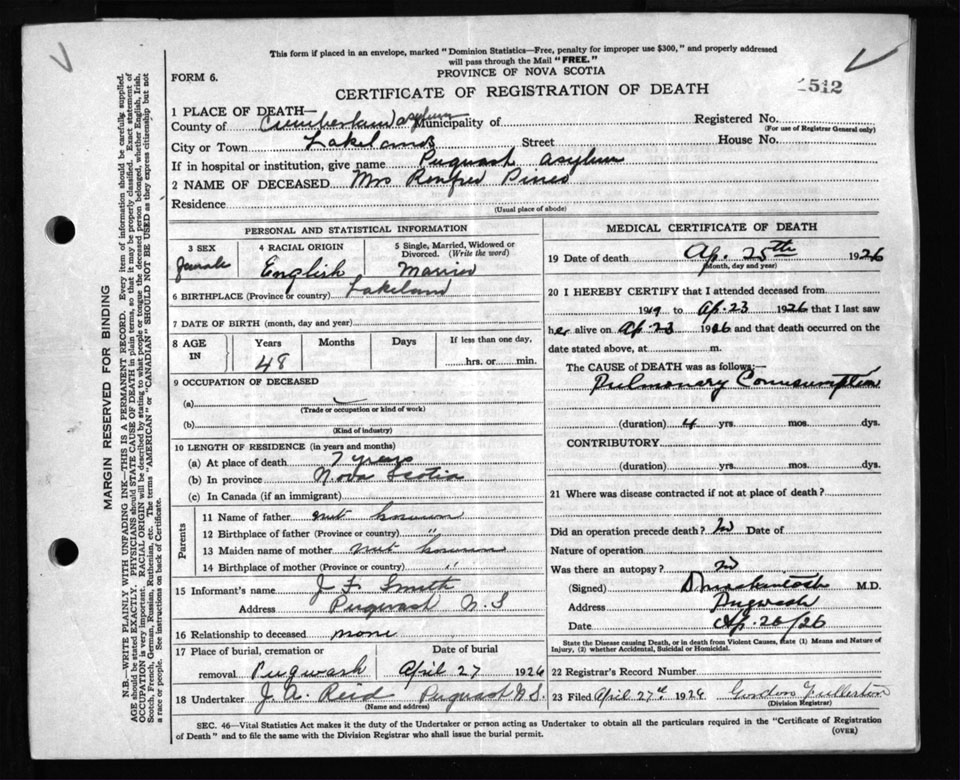 This form if placed in an envelope, marked "Dominion Statistics—Free, penalty for improper use $300," and properly addressed
will pass through the Mail "FREE."
FORM 6.
PROVINCE OF NOVA SCOTIA
CERTIFICATE OF REGISTRATION OF DEATH
512
1 PLACE OF DEATH—
County of Cumberland asylum Municipality of
Registered No.
(For use of Registrar General only)
City or Town Lakelands Street House No.
If in hospital or institution, give name Pugwash asylum
2 NAME OF DECEASED Mrs Renfred Pineo
Residence
(Usual place of abode)
PERSONAL AND STATISTICAL INFORMATION
3 SEX
Female
4 RACIAL ORIGIN
English
5 Single, Married, Widowed or
Divorced. (Write the word)
Married
6 BIRTHPLACE (Province or country) Lakeland
7 DATE OF BIRTH (month, day and year)
8 AGE
IN
Years
48
Months
Days
If less than one day,
hrs. or min.
9 OCCUPATION OF DECEASED
(a)
(Trade or occupation or kind of work)
(b)
(Kind of industry)
10 LENGTH OF RESIDENCE (in years and months)
(a) At place of death 7 years
(b) In province Nova Scotia
(c) In Canada (if an immigrant)
Parents
11 Name of father not known
12 Birthplace of father (Province or country) "
13 Maiden name of mother not known
14 Birthplace of mother (Province or country) "
15 Informant's name J F Smith
Address Pugwash N.S
16 Relationship to deceased none
17 Place of burial, cremation or
removal Pugwash
Date of burial
April 27 1926
18 Undertaker J. A. Reid Pugwash N.S.
(Name and address)
MEDICAL CERTIFICATE OF DEATH
19 Date of death Ap. 25th 1926
(Month, day and year)
20 I HEREBY CERTIFY that I attended deceased from
1919 to Ap. 23 1926 that I last saw
her alive on Ap 23 1926 and that death occurred on the
date stated above, at m.
The CAUSE of DEATH was as follows:—
Pulmonary Consumption
(duration) 4 yrs. mos. dys.
CONTRIBUTORY
(duration) yrs. mos. dys.
21 Where was disease contracted if not at place of death?
Did an operation precede death? no Date of
Nature of operation
Was there an autopsy? no
(Signed) D Mackintosh M.D.
Address Pugwash
Date Ap. 26/26
State the Disease causing Death, or in death from Violent Causes, state (1) Means and Nature of
Injury, (2) whether Accidental, Suicidal or Homicidal.
22 Registrar's Record Number
23 Filed April 27th 1926 Gordon Fullerton
(Division Registrar)
SEC. 46—Vital Statistics Act makes it the duty of the Undertaker or person acting as Undertaker to obtain all the particulars required in the "Certificate of Registration
of Death" and to file the same with the Division Registrar who shall issue the burial permit.
(OVER)
MARGIN RESERVED FOR BINDING
N.B.—WRITE PLAINLY WITH UNFADING INK—THIS IS A PERMANENT RECORD. Every item of information should be carefully supplied.
AGE should be stated EXACTLY. PHYSICIANS should STATE CAUSE OF DEATH in plain terms, so that it may be properly classified. Exact statement of
OCCUPATION is very important. RACIAL ORIGIN will be described by stating to what people or tongue the deceased person belonged, whether English, Irish,
Scotch, French, German, Russian, Ruthenian, etc. The terms "AMERICAN" or "CANADIAN" SHOULD NOT BE USED as they express citizenship but not
a race or people. See instructions on back of Certificate.